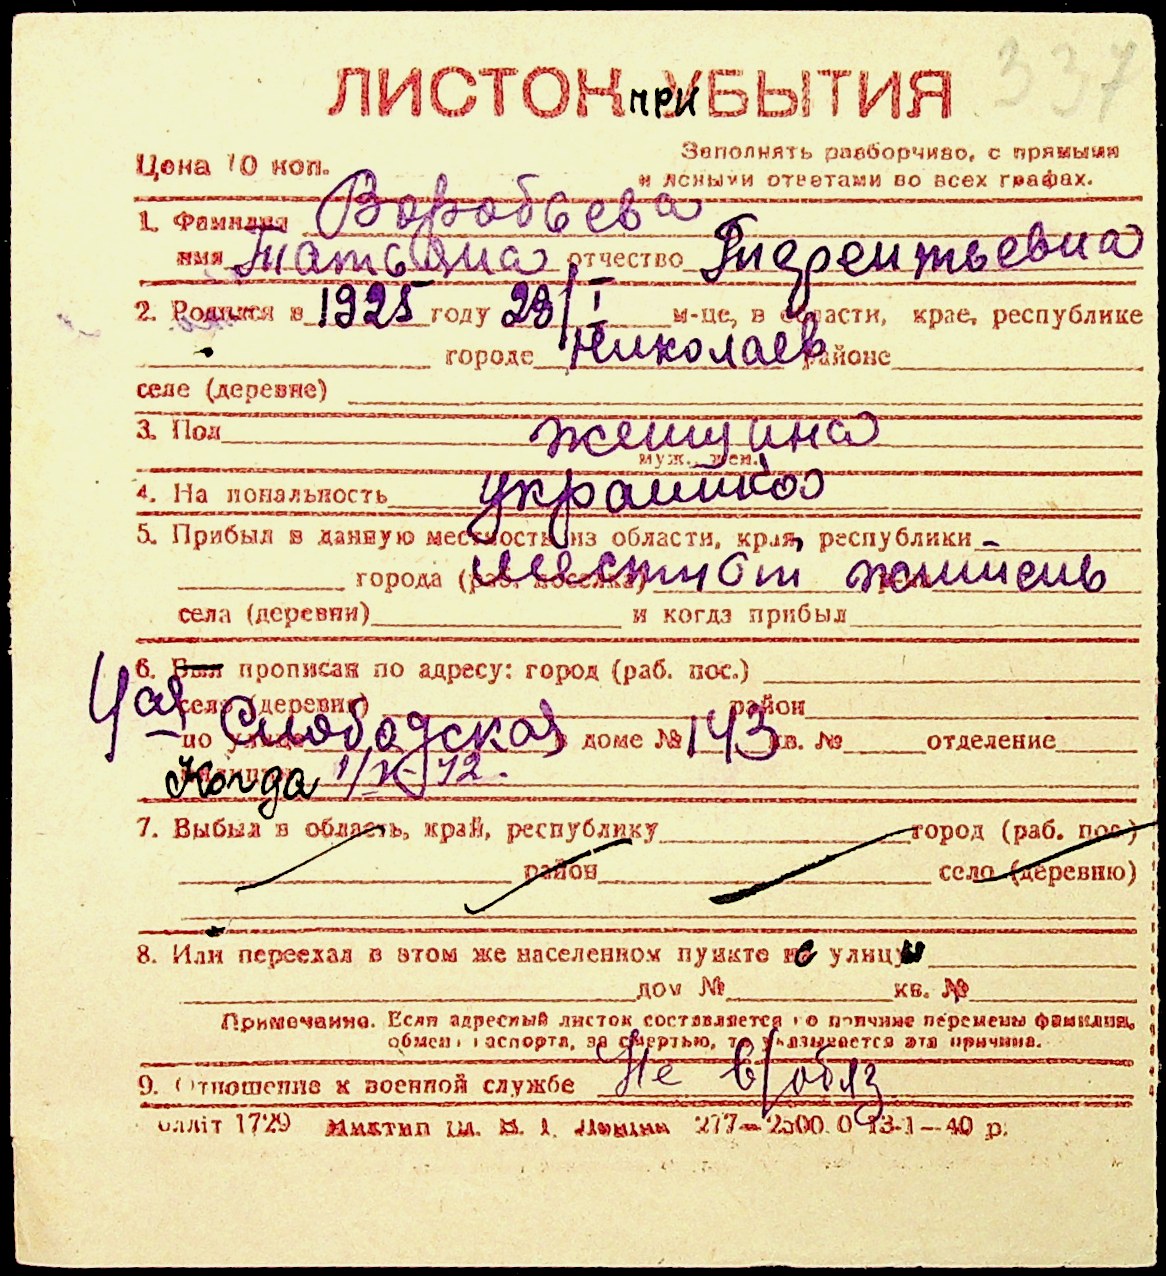 337
ЛИСТОК при УБЫТИЯ
Цена 10 коп.
Заполнять разборчиво, с прямыми
и ясными ответами во всех графах.
1. Фамилия Воробьева
имя Татьяна отчество
2. Родился в 1925 году 29/I м-це, в области, крае, республике
городе Николаев районе
селе (деревне)
3. Пол женщина
муж., жен.
4. Национальность украинка
5. Прибыл в данную местность из области, края, республики
города (раб. поселка) местн
села (деревни) и когда прибыл
6. Был прописан по адресу: город (раб. пос.)
село (деревня) район
по улице 4ая Слободская доме № 143 кв. № отделение
Когда 1/X-42.
7. Выбыл в область, край, республику город (раб. пос.)
район село (деревню)
8. Или переехал в этом же населенном пункте с улицы
дом № кв. №
Примечание. Если адресный листок составляется по причине перемены фамилии,
обмена паспорта, за смертью, то указывается эта причина.
9. Отношение к военной службе Не в/обяз
1729 277—2500.0 13-1—40 р.